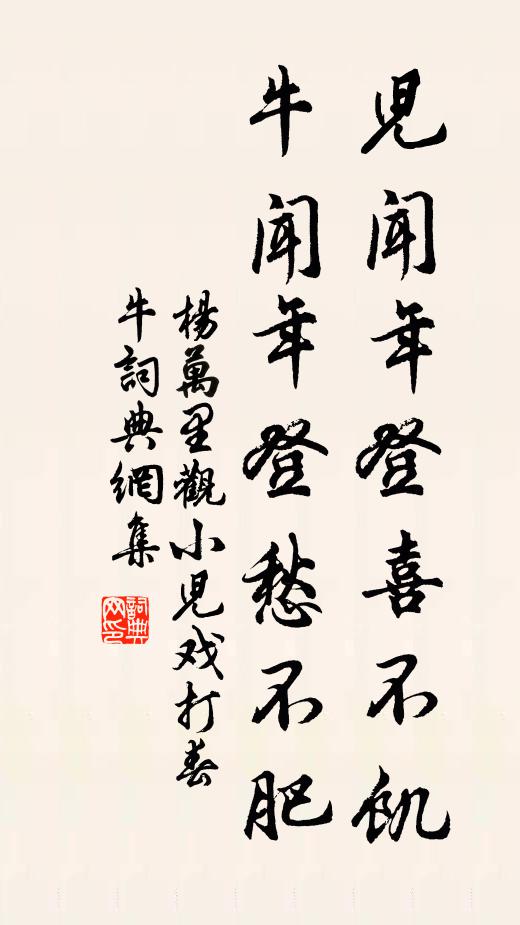 児闻年登喜不飢
牛闻年登愁不肥
楊萬里觀小児戏打春
牛詞典網集
詞典网印